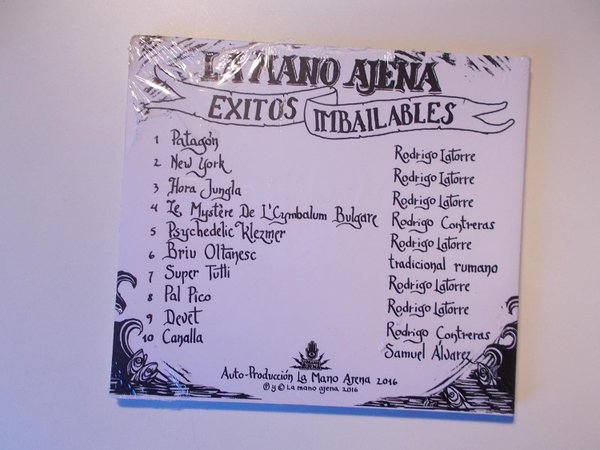 LA MANO AJENA
EXITOS IMBAILABLES
1 Patagón Rodrigo Latorre
2 New York Rodrigo Latorre
3 Hora Jungla Rodrigo Latorre
4 Le Mystère De L'Cymbalum Bulgare Rodrigo Contreras
5 Psychedelic Klezmer Rodrigo Latorre
6 Briu Oltanesc tradicional rumano
7 Super Tutti Rodrigo Latorre
8 Pal Pico Rodrigo Latorre
9 Devet Rodrigo Contreras
10 Canalla Samuel Alvarez
Auto-Producción La Mano Ajena 2016
℗ y © La mano ajena 2016